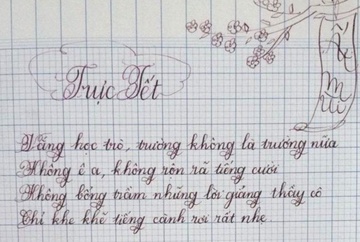 Trực Tết
Ất
Mùi
Vắng học trò, trường không là trường nữa
Không ê a, không rộn rã tiếng cười
Không bổng trầm những lời giảng thầy cô
Chỉ khe khẽ tiếng cành rơi rất nhẹ.